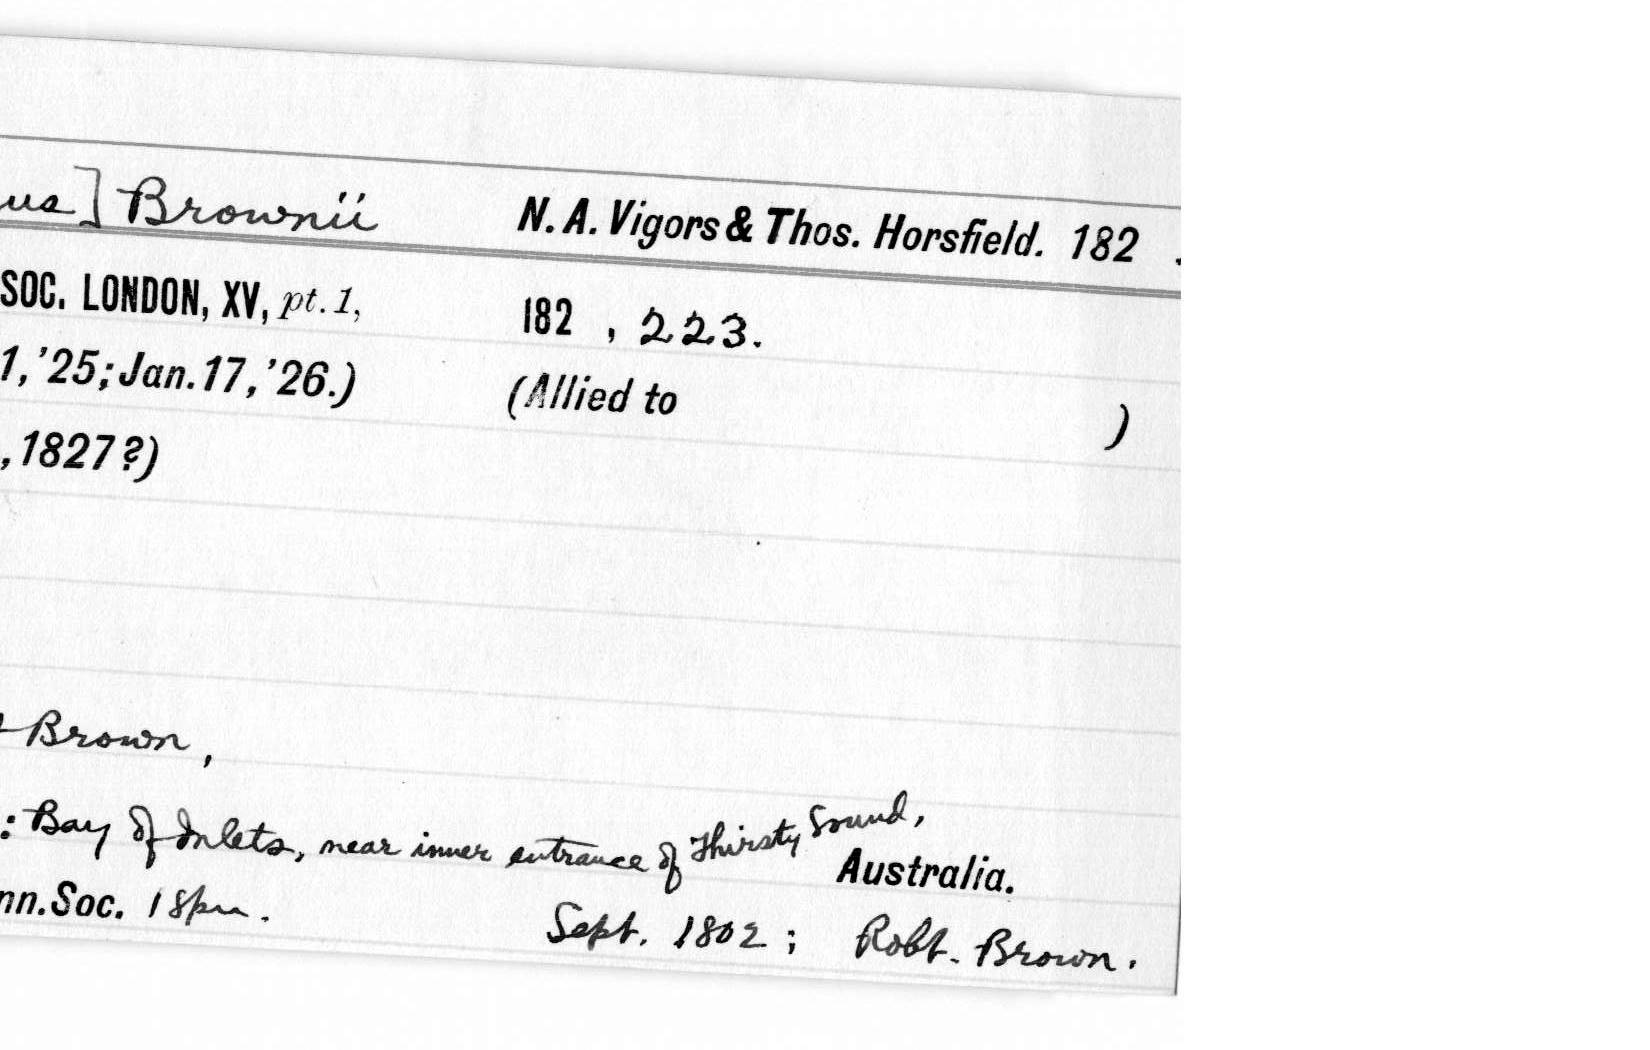 us] Brownii N. A. Vigors & Thos. Horsfield. 182 .
SOC. LONDON, XV, pt. 1, 182 , 223.
1, '25; Jan. 17, '26.) (Allied to )
, 1827?)
Brown,
: Bay of Inlets, near inner entrance of Thirsty Sound,
Australia.
nn. Soc. 1 spm. Sept. 1802; Robt. Brown.